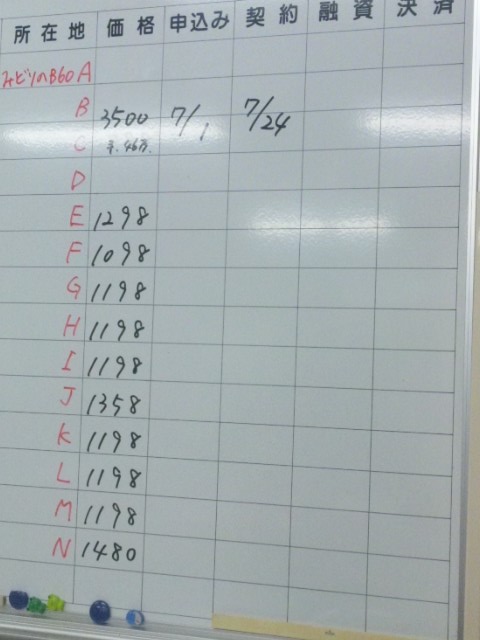 所在地 価格 申込み 契約 融資 決済
みどりのB60 A
B 3500 7/1 7/24
C
D
E 1298
F 1098
G 1198
H 1198
I 1198
J 1358
K 1198
L 1198
M 1198
N 1480